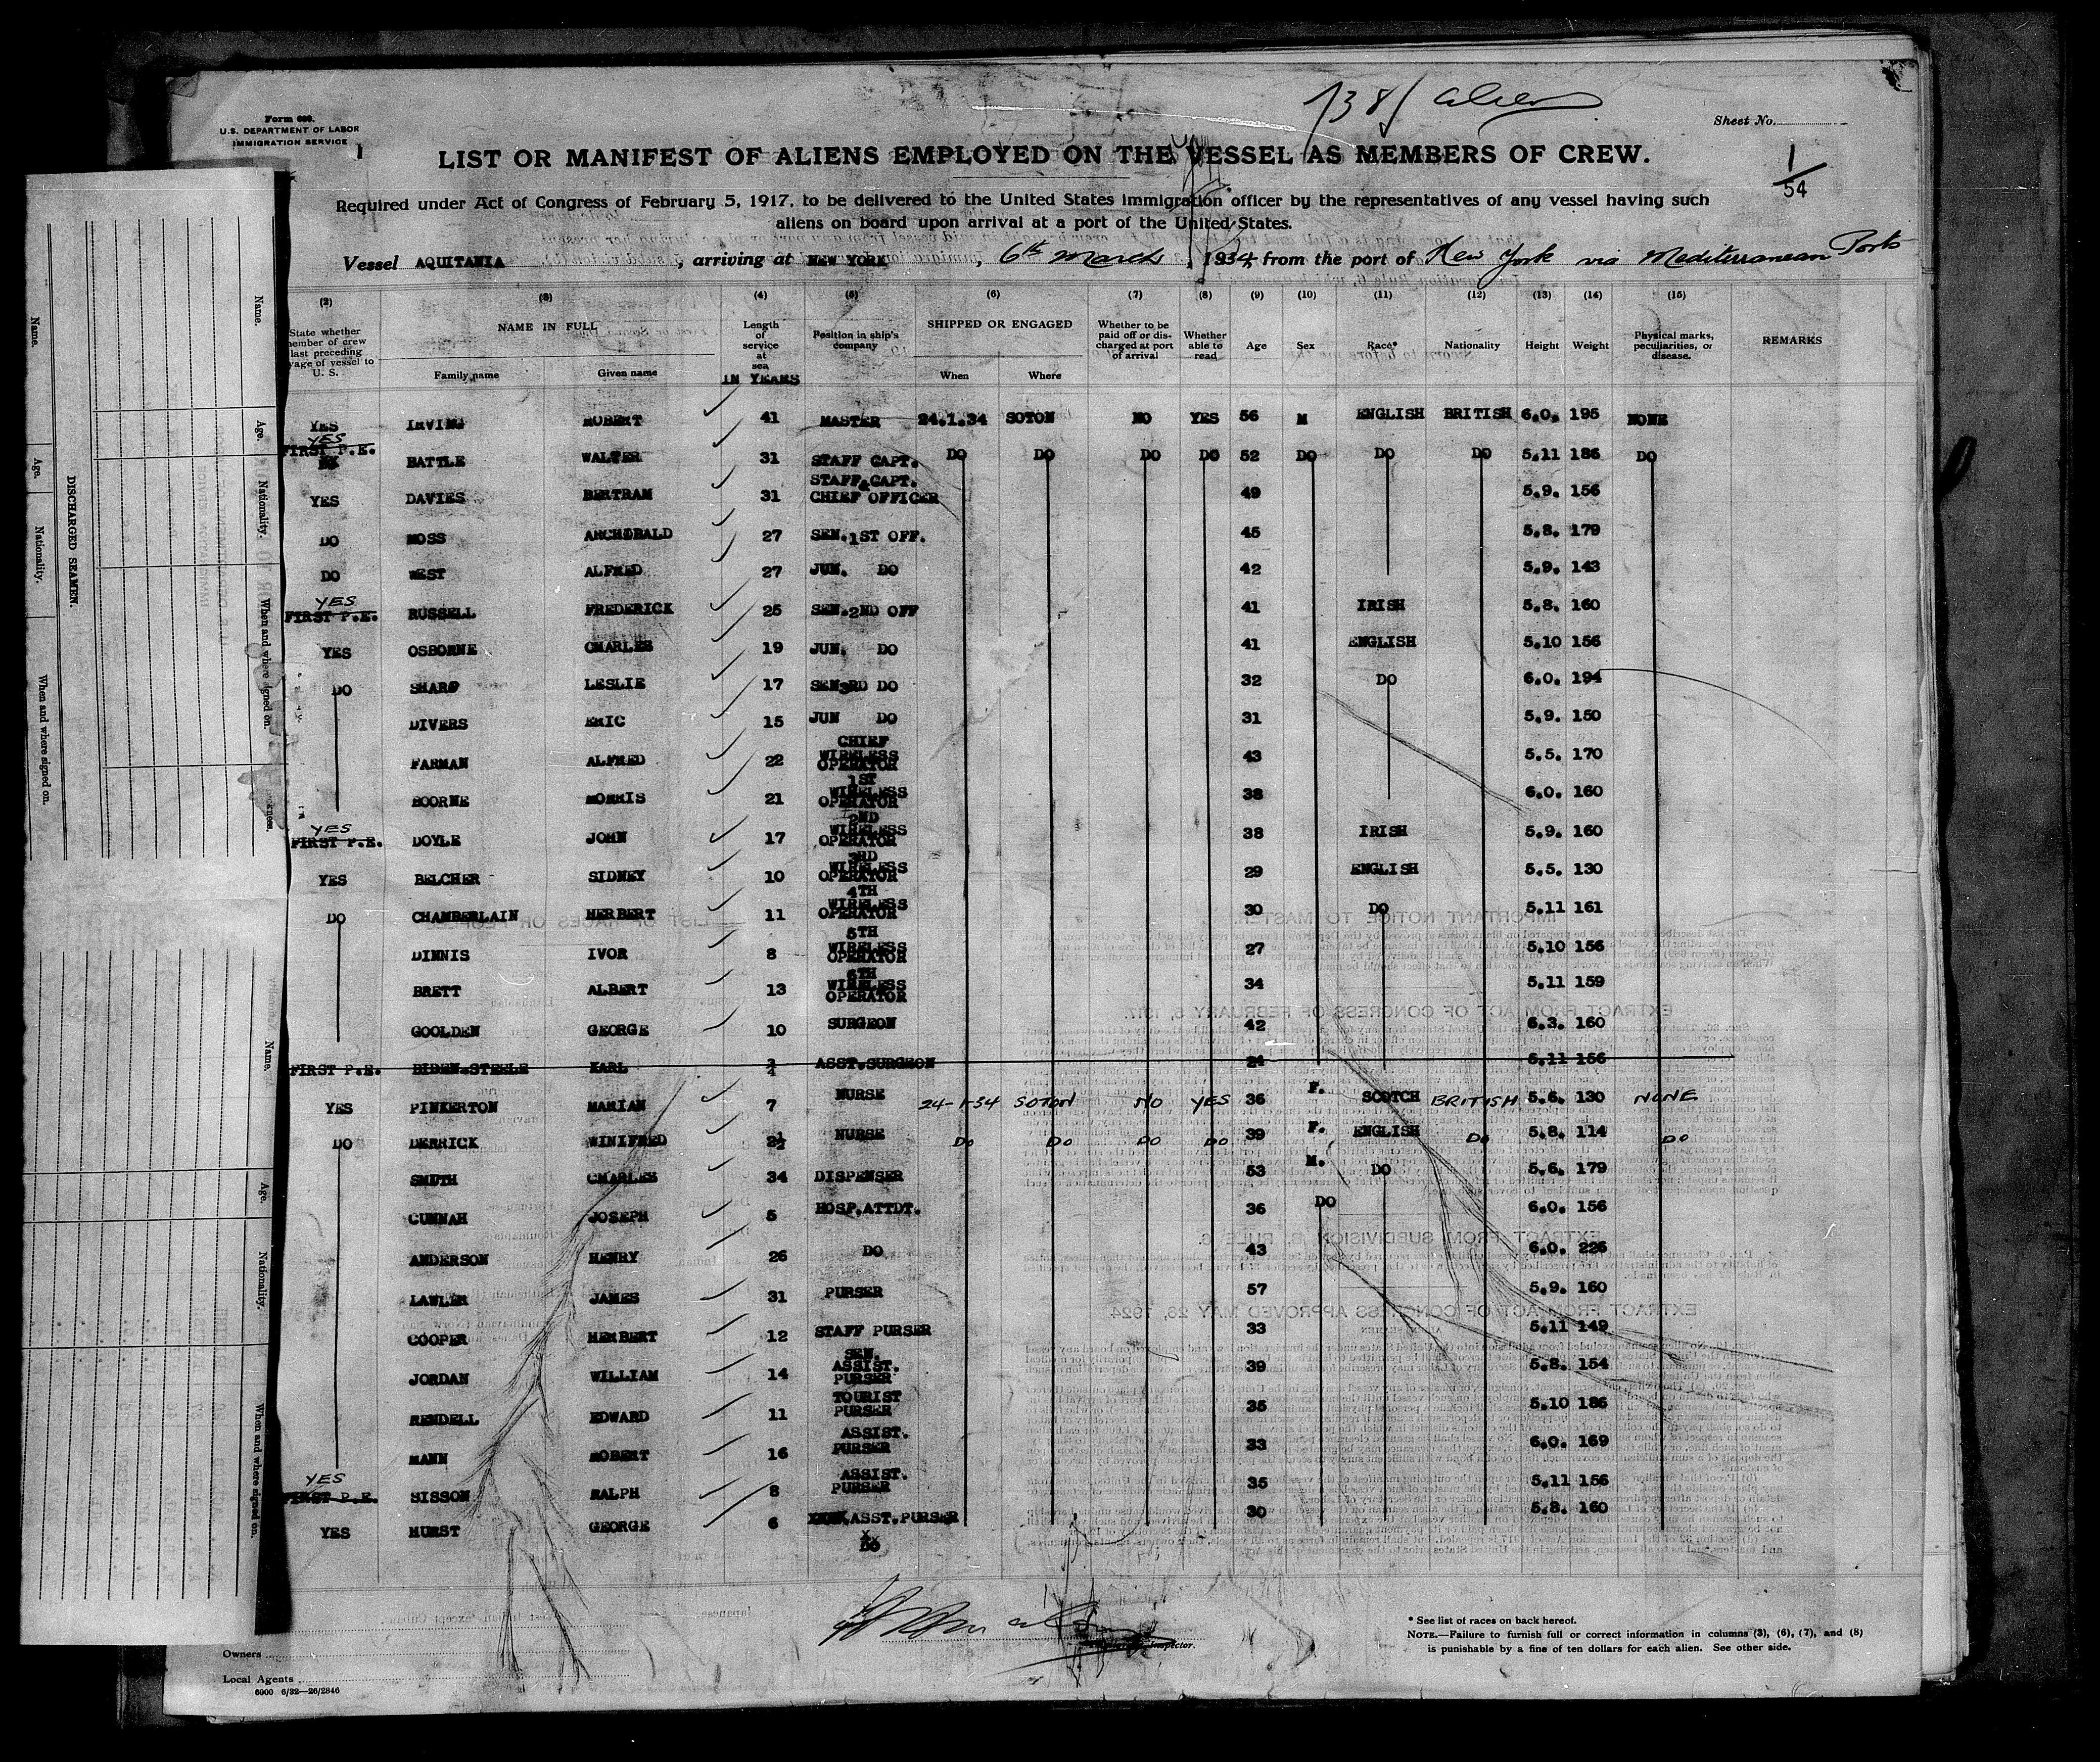 Form 680.
U.S. DEPARTMENT OF LABOR
IMMIGRATION SERVICE
Sheet No.
1/54
LIST OR MANIFEST OF ALIENS EMPLOYED ON THE VESSEL AS MEMBERS OF CREW.
Required under Act of Congress of February 5, 1917, to be delivered to the United States immigration officer by the representatives of any vessel having such
aliens on board upon arrival at a port of the United States.
Vessel AQUITANIA, arriving at NEW YORK, 6th March, 1934, from the port of New York via Mediterranean Ports
(2) (3) (4) (5) (6) (7) (8) (9) (10) (11) (12) (13) (14) (15)
State whether member of crew last preceding voyage of vessel to U. S. NAME IN FULL Family name Given name Length of service at sea IN YEARS Position in ship's company SHIPPED OR ENGAGED When Where Whether to be paid off or discharged at port of arrival Whether able to read Age Sex Race* Nationality Height Weight Physical marks, peculiarities, or disease. REMARKS
YES IRVING ROBERT 41 MASTER 24.1.34 SOTON NO YES 56 M ENGLISH BRITISH 6.0. 195 NONE
YES FIRST P.E. BATTLE WALTER 31 STAFF CAPT. DO DO DO DO 52 DO DO DO 5.11 186 DO
YES DAVIES BERTRAM 31 STAFF CAPT. & CHIEF OFFICER 49 5.9. 156
DO MOSS ARCHIBALD 27 SEN.1ST OFF. 45 5.8. 179
DO WEST ALFRED 27 JUN. DO 42 5.9. 143
YES FIRST P.E. RUSSELL FREDERICK 25 SEN.2ND OFF 41 IRISH 5.8. 160
YES OSBORNE CHARLES 19 JUN. DO 41 ENGLISH 5.10 156
DO SHARP LESLIE 17 SEN3RD DO 32 DO 6.0. 194
DIVERS ERIC 15 JUN DO 31 5.9. 150
FARMAN ALFRED 22 CHIEF WIRELESS OPERATOR 43 5.5. 170
BOORNE MORRIS 21 1ST WIRELESS OPERATOR 38 6.0. 160
YES FIRST P.E. DOYLE JOHN 17 2ND WIRELESS OPERATOR 38 IRISH 5.9. 160
YES BELCHER SIDNEY 10 3RD WIRELESS OPERATOR 29 ENGLISH 5.5. 130
DO CHAMBERLAIN HERBERT 11 4TH WIRELESS OPERATOR 30 DO 5.11 161
DINNIS IVOR 8 5TH WIRELESS OPERATOR 27 5.10 156
BRETT ALBERT 13 6TH WIRELESS OPERATOR 34 5.11 159
GOOLDEN GEORGE 10 SURGEON 42 6.3. 160
FIRST P.E. BIDEN-STEELE KARL ¾ ASST.SURGEON 24 5.11 156
YES PINKERTON MARIAN 7 NURSE 24-1-34 SOTON NO YES 36 F. SCOTCH BRITISH 5.6. 130 NONE
DO DERRICK WINIFRED 2½ NURSE DO DO DO DO 39 F. ENGLISH DO 5.8. 114 DO
SMITH CHARLES 34 DISPENSER 53 M. DO 5.6. 179
CUNNAH JOSEPH 5 HOSP.ATTDT. 36 DO 6.0. 156
ANDERSON HENRY 26 DO 43 6.0. 226
LAWLER JAMES 31 PURSER 57 5.9. 160
COOPER HERBERT 12 STAFF PURSER 33 5.11 149
JORDAN WILLIAM 14 SEN. ASSIST. PURSER 39 5.8. 154
RENDELL EDWARD 11 TOURIST PURSER 35 5.10 186
MANN ROBERT 16 ASSIST. PURSER 33 6.0. 169
YES FIRST P.E. SISSON RALPH 8 ASSIST. PURSER 35 5.11 156
YES HURST GEORGE 6 ASST.PURSER 30 5.8. 160
DO
Inspector.
* See list of races on back hereof.
NOTE.—Failure to furnish full or correct information in columns (3), (6), (7), and (8)
is punishable by a fine of ten dollars for each alien. See other side.
Owners
Local Agents
6000 6/32—26/2846
DISCHARGED SEAMEN.
Name. Age. Nationality. When and where signed on.
Name. Age. Nationality. When and where signed on.
Name. Age. Nationality. When and where signed on.